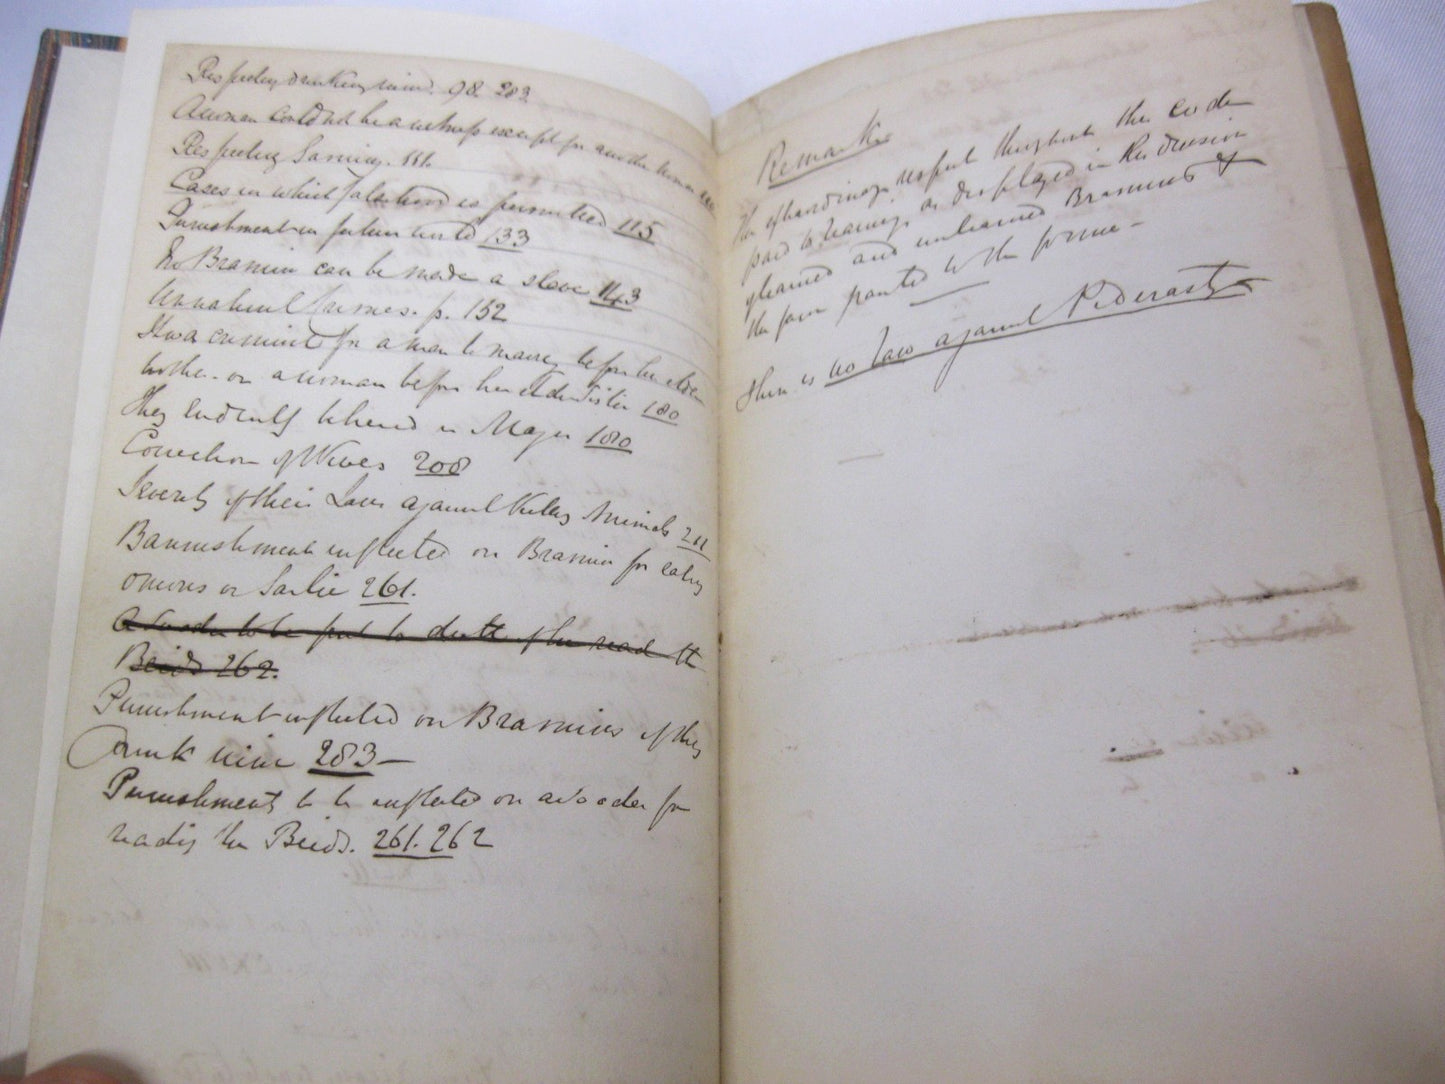 Respecting drinking wine. 98. 283
A woman could not be a witness except for another woman
Respecting Gaming.
Cases in which falsehood is permitted 115
Punishment in future world 133
No Bramin can be made a slave 143
Unnatural
It was a crime for a man to marry before his elder
brother or a woman before her elder sister 180
They
believed in Magic 180
Correction of Wives 208
Severity of their Laws against killing Animals 211
Bannishment inflected on Bramin for eating
onions or Garlic 261.
A Sooder to be put to death if he read the
Beids 262.
Punishment inflected on Bramins if they
drink wine 283 —
Punishment to be inflected on a Sooder for
reading the Beids. 261. 262
Remarks
The extraordinary respect throughout this code
paid to learning as displayed in the division
of learned and unlearned Bramins &
the favor granted to the former —
There is no law against Pederasty —